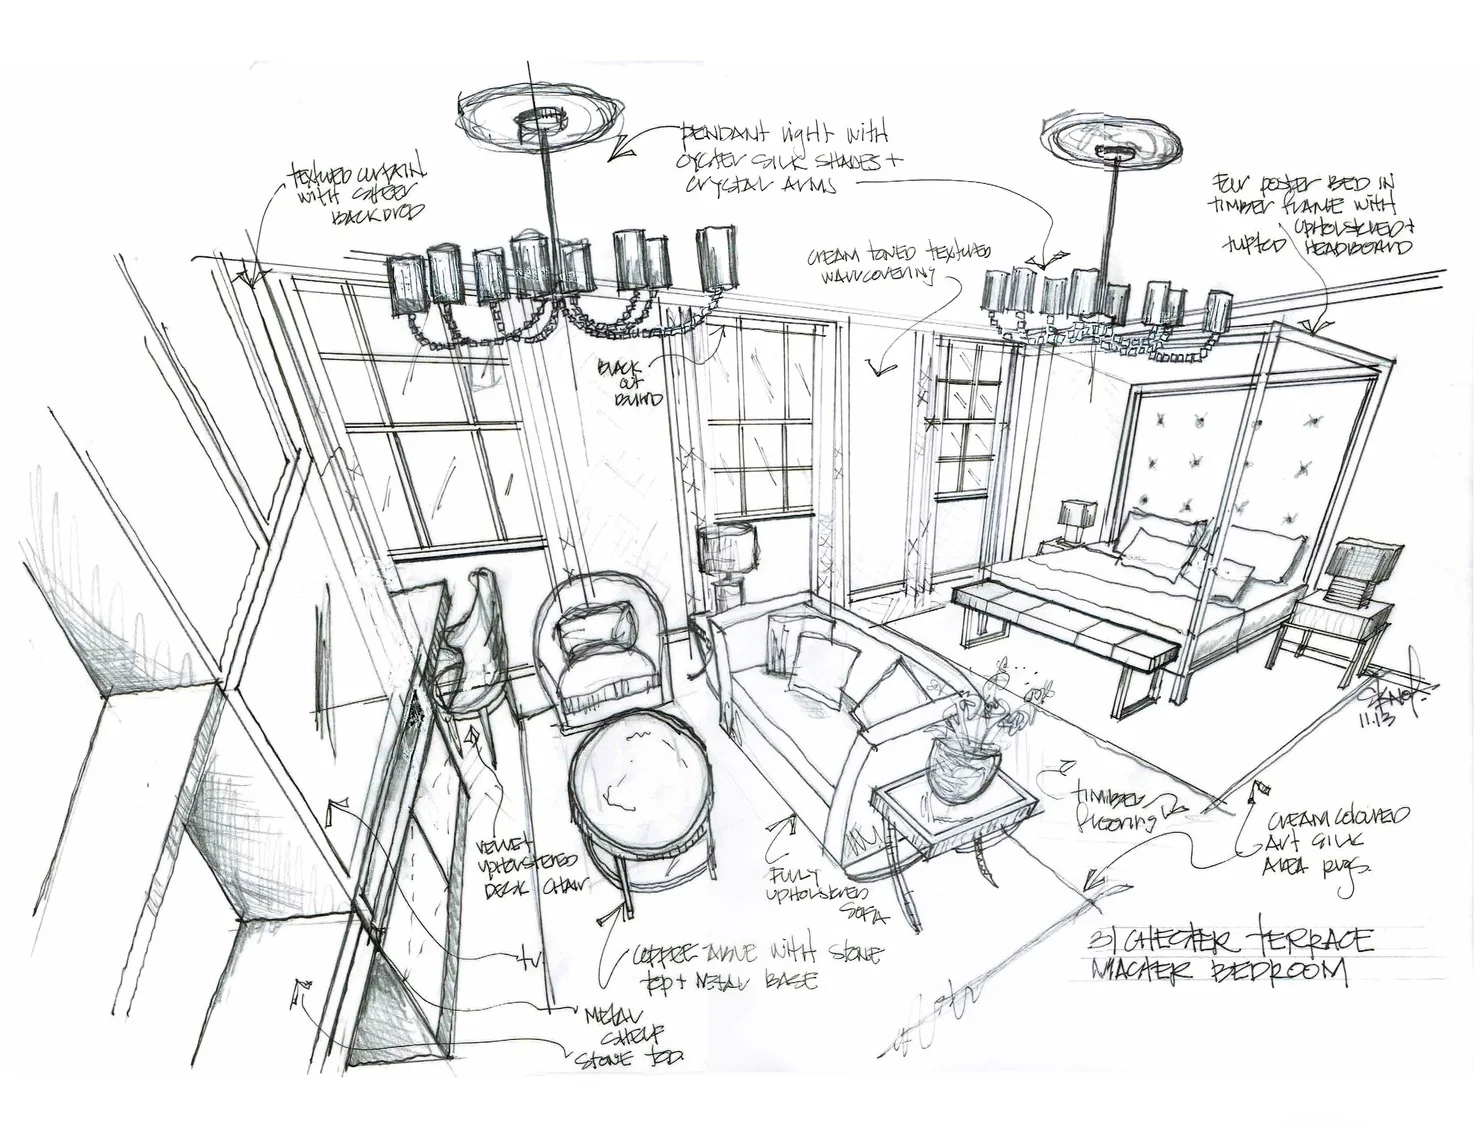 TEXTURED CURTAIN
WITH SHEER
BACKDROP
PENDANT LIGHT WITH
OYSTER SILK SHADES +
CRYSTAL ARMS
FOUR POSTER BED IN
TIMBER FRAME WITH
UPHOLSTERED +
TUFTED HEADBOARD
CREAM TONED TEXTURED
WALLCOVERING
BLACK
OUT
BLIND
11.13
TIMBER
FLOORING
CREAM COLOURED
ART SILK
AREA RUGS.
VELVET
UPHOLSTERED
DESK CHAIR
FULLY
UPHOLSTERED
SOFA
COFFEE TABLE WITH STONE
TOP + METAL BASE
TV
METAL
SHELF
STONE TOP.
31 CHESTER TERRACE
MASTER BEDROOM